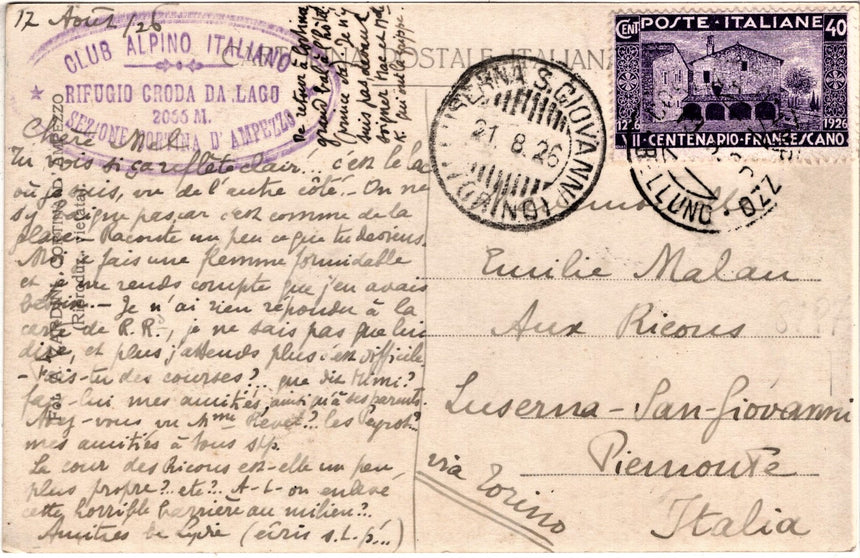 12 Août /26
CLUB ALPINO ITALIANO
RIFUGIO CRODA DA LAGO
2066 M.
SEZIONE CORTINA D'AMPEZZO
CARTOLINA POSTALE ITALIANA
De retour à Cortina
grand bal à l'hôtel
je n'y
suis pas,
soigner
K. qui ont la grippe.
Chère Mil.
Tu vois si ça reflète clair! c'est le lac
où je suis, vu de l'autre côté. On ne
s'y baigne pas, car c'est comme de la
glace. Raconte un peu ce que tu deviens.
Moi je fais une flemme formidable
et je me rends compte que j'en avais
besoin. Je n'ai rien répondu à la
carte de R.R., je ne sais pas que lui
dire, et plus j'attends plus c'est difficile
- Fais-tu des courses?.. que dit Mimi?
fais-lui mes amitiés, ainsi qu'à ses parents.
Avez-vous vu Mme Revel?.. les Peyrot?
mes amitiés à tous slp.
La cour des Ricous est-elle un peu
plus propre?.. etc?.. A-t-on enlevé
cette horrible barrière au milieu?..
Amitiés de Lydie (écris s.t.p...)
Fot. CORTINA D'AMPEZZO
(Riproduz. vietata)
LUSERNA S. GIOVANNI
21. 8. 26
(TORINO)
CENT POSTE ITALIANE 40
1226 VII CENTENARIO FRANCESCANO 1926
BELLUNO
Emilie Malan
Aux Ricous
Luserna-San-Giovanni
Piemonte
via Torino
Italia